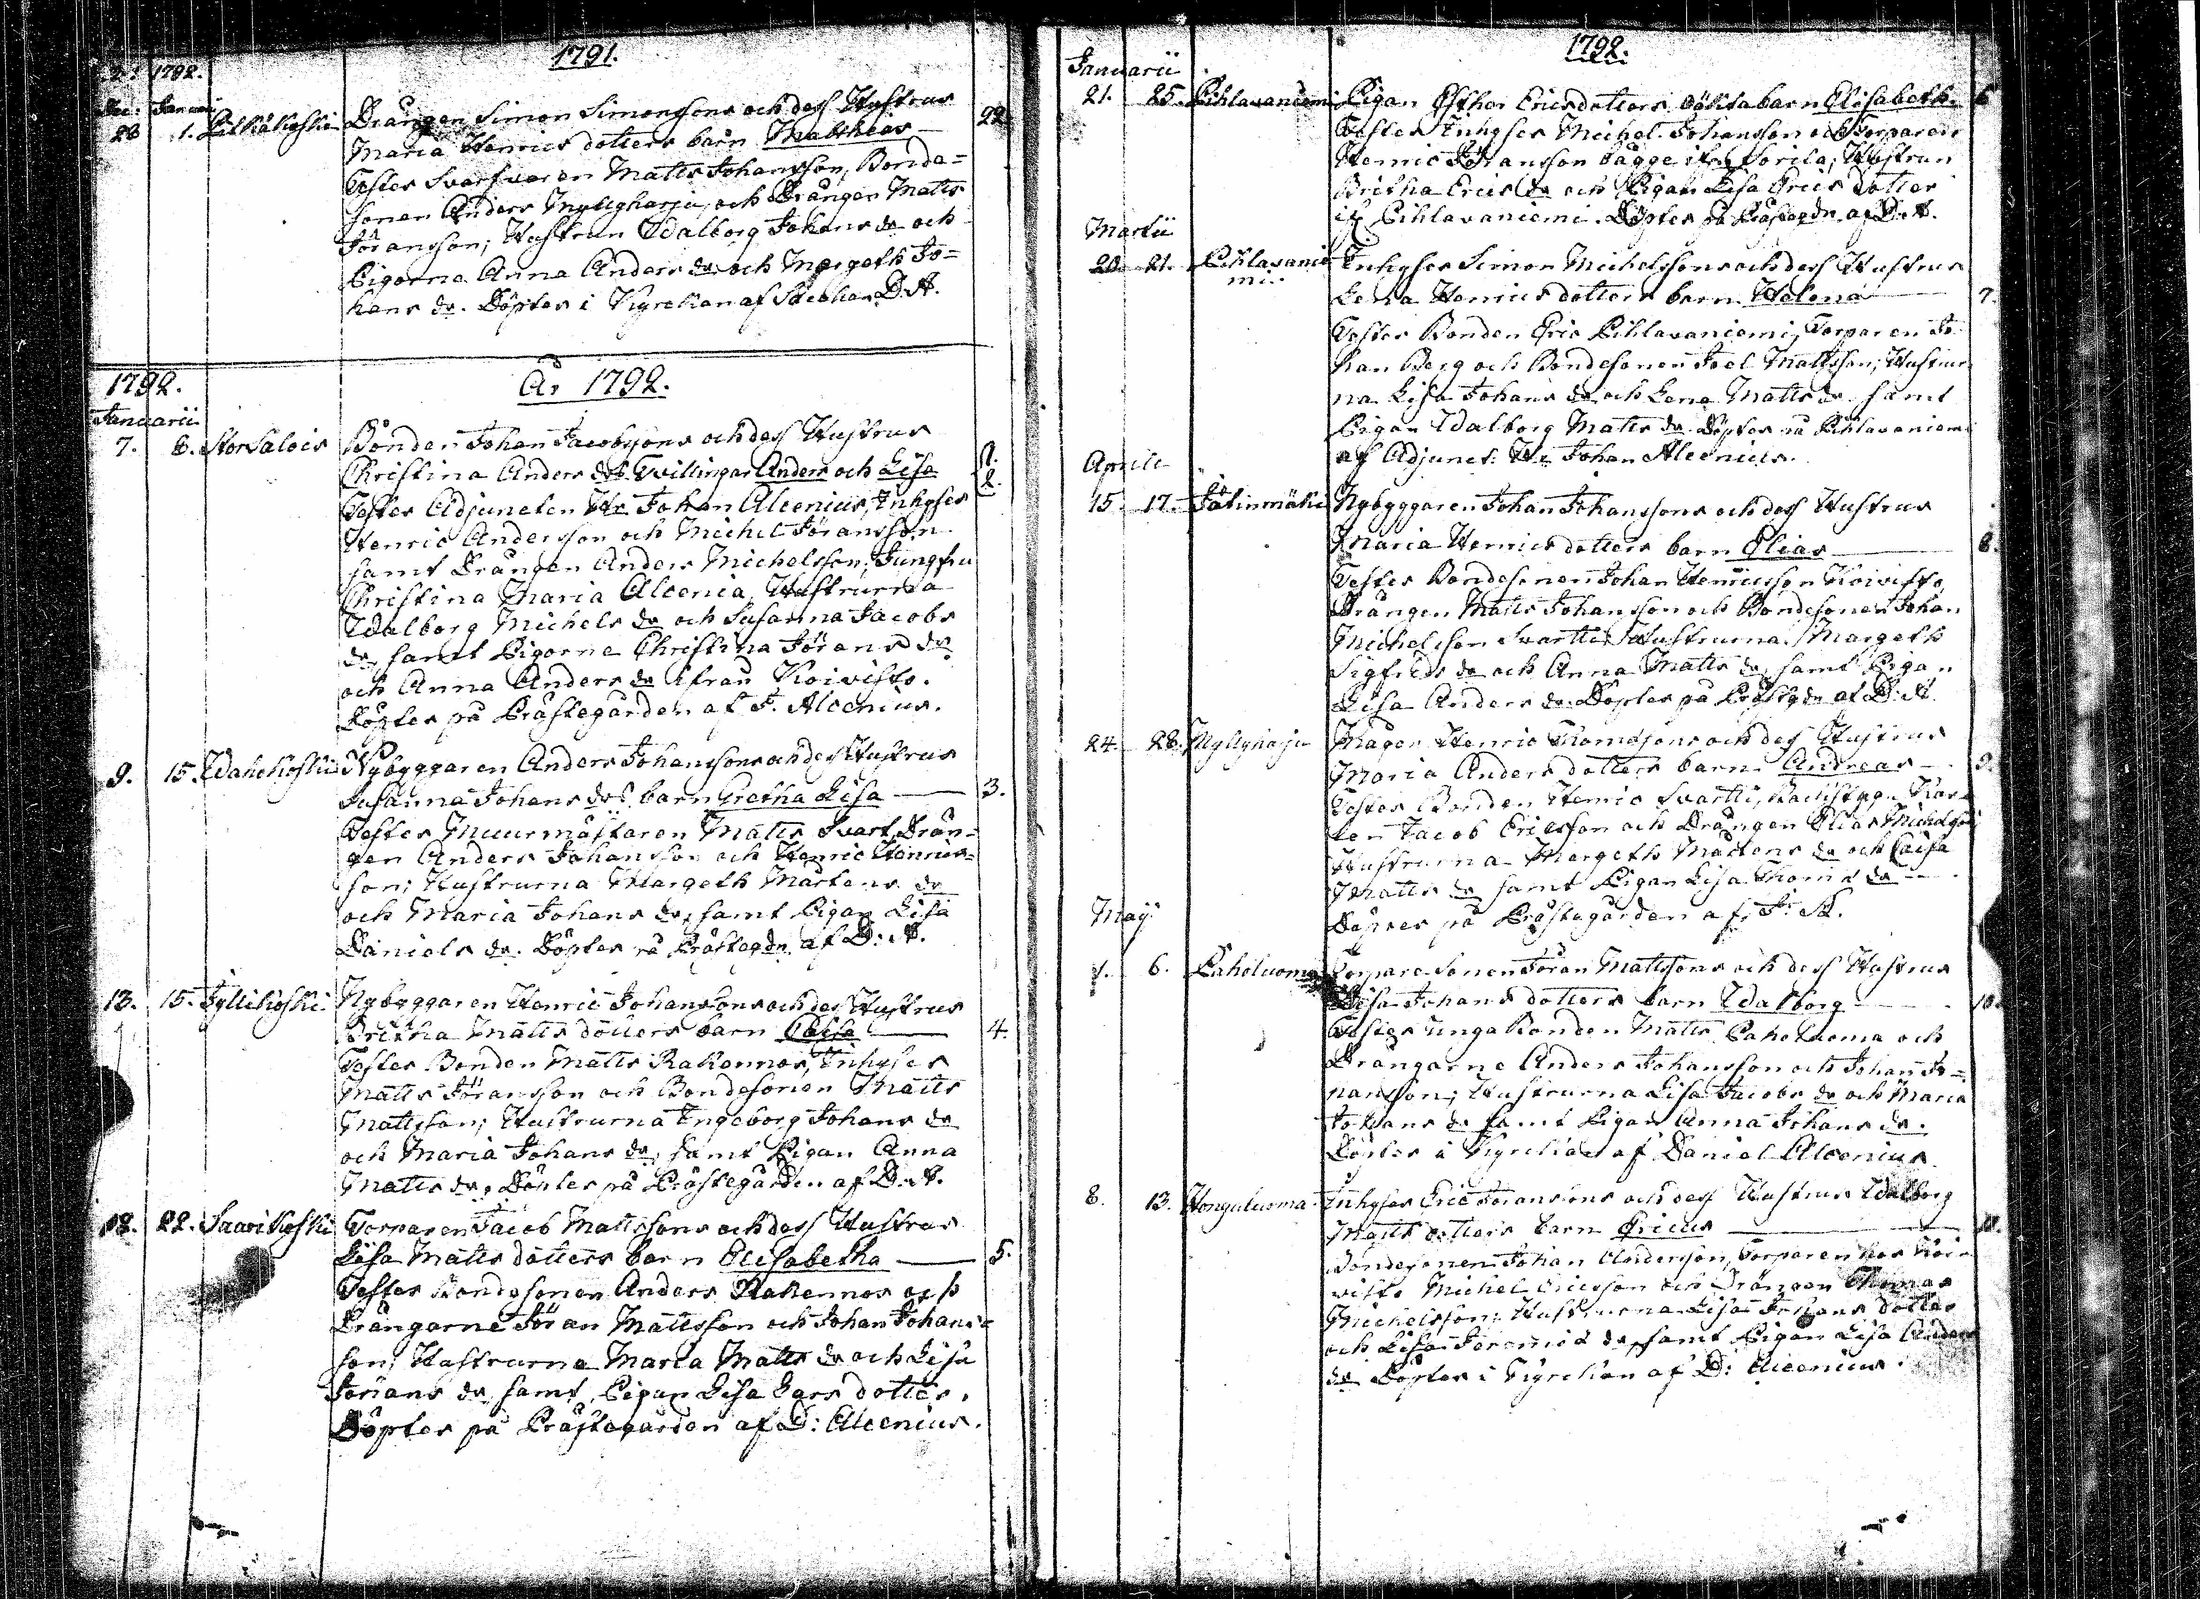 1791.
1792.
Dec. Januarii
28 1. Pitkäkoski Drängen Simon Simonssons och dess Hustrus
Maria Henrics dotters barn Matthias — 22
Testes Svarfvaren Matts Johansson, Bonda=
sonen Anders Myllyharju, och Drängen Matts
Jöransson; Hustrun Walborg Johans dr och
Pigorna Anna Anders dr och Margeth Jo=
hans dr. Döptes i Kyrckan af D. A.
1792.
År 1792.
Januarii
7. 8. Storsalois Bonden Johan Jacobssons och dess Hustrus
Christina Anders drs Tvillingar Anders och Lisa 1. 2.
Testes Adjuncten Hr Johan Alcenius, Inhyses
Henric Andersson och Michel Jöransson
samt Drängen Anders Michelsson; Jungfru
Christina Maria Alcenia, Hustrurna
Walborg Michels dr och Susanna Jacobs
dr, samt Pigorna Christina Jörans dr
och Anna Anders dr ifrån Koivisto.
Döptes på Prästegården af J. Alcenius.
9. 15. Wahokoski Nybyggaren Anders Johanssons och dess Hustrus
Susanna Johans drs barn Gretha Lisa — 3.
Testes Muurmästaren Matts Svart, Drän=
gen Anders Johansson och Henric Henrics=
son; Hustrurna Margeth Mårtens dr
och Maria Johans dr, samt Pigan Lisa
Daniels dr. Döptes på Prästegdn af D: A.
13. 15. Jyllikoski Nybyggaren Henric Johanssons och dess Hustrus
Britha Matts dotters barn Caisa — 4.
Testes Bonden Matts Rakennos, Inhyses
Matts Jöransson och Bondesonen Matts
Mattsson; Hustrurna Ingeborg Johans dr
och Maria Johans dr, samt Pigan Anna
Matts dr, Döptes på Prästegården af D. A.
18. 22. Saarikoski Torparen Jacob Mattssons och dess Hustrus
Lisa Matts dotters barn Elisabetha — 5.
Testes Bondesonen Anders Rakennos och
Drängarne Jöran Mattsson och Johan Johans=
son; Hustrurna Maria Matts dr och Lisa
Jörans dr, samt Pigan Lisa Lars dotter.
Döptes på Prästegården af D: Alcenius.
1792.
Januarii
21. 25. Pihlavaniemi Pigan Esther Ericsdotters oäkta barn Elisabeth. 6
Testes Inhyses Michel Johansson och Torparen
Henric Jöransson Bagge ifrån Sorila; Hustrun
Britha Erics dr och Pigan Lisa Erics dotter
if. Pihlavaniemi. Döptes på Prästegdn af D. A.
Martii
20. 21. Pihlavanie Inhyses Simon Michelssons och dess Hustrus
mi. Lena Henricsdotters barn Helena — 7.
Testes Bonden Eric Pihlavaniemi, Torparen Jo
han Berg och Bondesonen Joel Mattsson; Hustrur
na Lisa Johans dr och Lena Matts dr samt
Pigan Walborg Matts dr Döptes på Pihlavaniemi
af Adjunct. Hr Johan Alcenius.
Aprili
15. 17. Jätinmäki Nybyggaren Johan Johanssons och dess Hustrus
Maria Henricsdotters barn Elias — 8.
Testes Bondesonen Johan Henricsson Koivisto,
Drängen Matts Johansson och Bondesonen Johan
Michelsson Svartti, Hustrurna Margeth
Sigfrids dr och Anna Matts dr, samt Pigan
Lisa Anders dr. Döptes på Prästegdn af D. A.
24. 28. Myllyharju Mågen Henric Thomassons och dess Hustrus
Maria Anders dotters barn Andreas — 9.
Testes Bonden Henric Svartti, Kar=
len Jacob Ericsson och Drängen Elias Michelsson
Hustrurna Margeth Mårtens dr och Caisa
Matts dr samt Pigan Lisa Thoms dr
Döptes på Prästegården af J. A.
Maij
1. 6. Paholuoma Torpare Sonen Jöran Mattssons och dess Hustrus
Lisa Johans dotters barn Walborg — 10.
Testes Unga Bonden Matts Paholuoma och
Drängarne Anders Johansson och Johan Jo=
hansson; Hustrurna Lisa Jacobs dr och Maria
Johans dr samt Pigan Anna Johans dr.
Döptes i Kyrckan af Daniel Alcenius
8. 13. Hongaluoma Inhyses Eric Jöranssons och dess Hustrus Walborg
Matts dotters barn Ericus — 11.
Bondesonen Johan Andersson, Torparen hos Koi=
visto Michel Ericsson och Drängen Thomas
Michelsson; Hustrurna Lisa Johans dotter
och Lisa Jeremiæ dr, samt Pigan Lisa Anders
dr Döptes i Kyrckan af D: Alcenius.